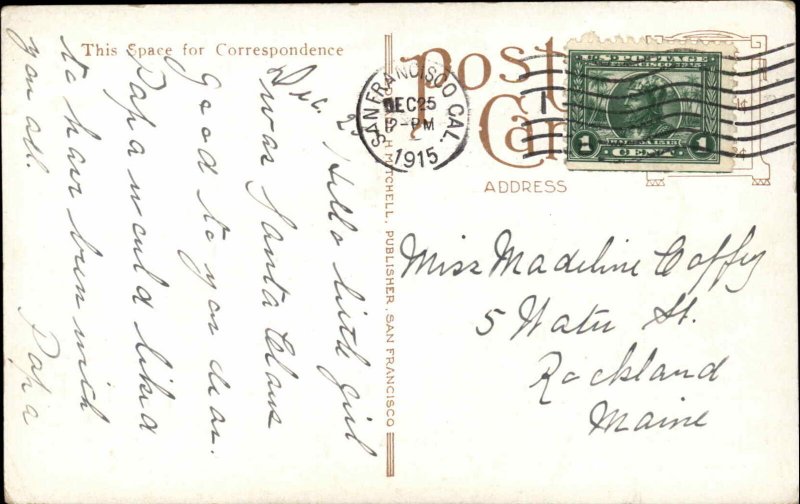 This Space for Correspondence
Dec. 2
Hello little girl
was Santa Claus
Good to you dear.
Papa would liked
to have been with
you all.
Papa
H MITCHELL, PUBLISHER, SAN FRANCISCO
Post
Car
SAN FRANCISCO CAL.
DEC 25
12-PM
1915
U.S. POSTAGE
SAN FRANCISCO 1915
1 CENT 1
ADDRESS
Miss Madeline Coffey
5 Water St.
Rockland
Maine